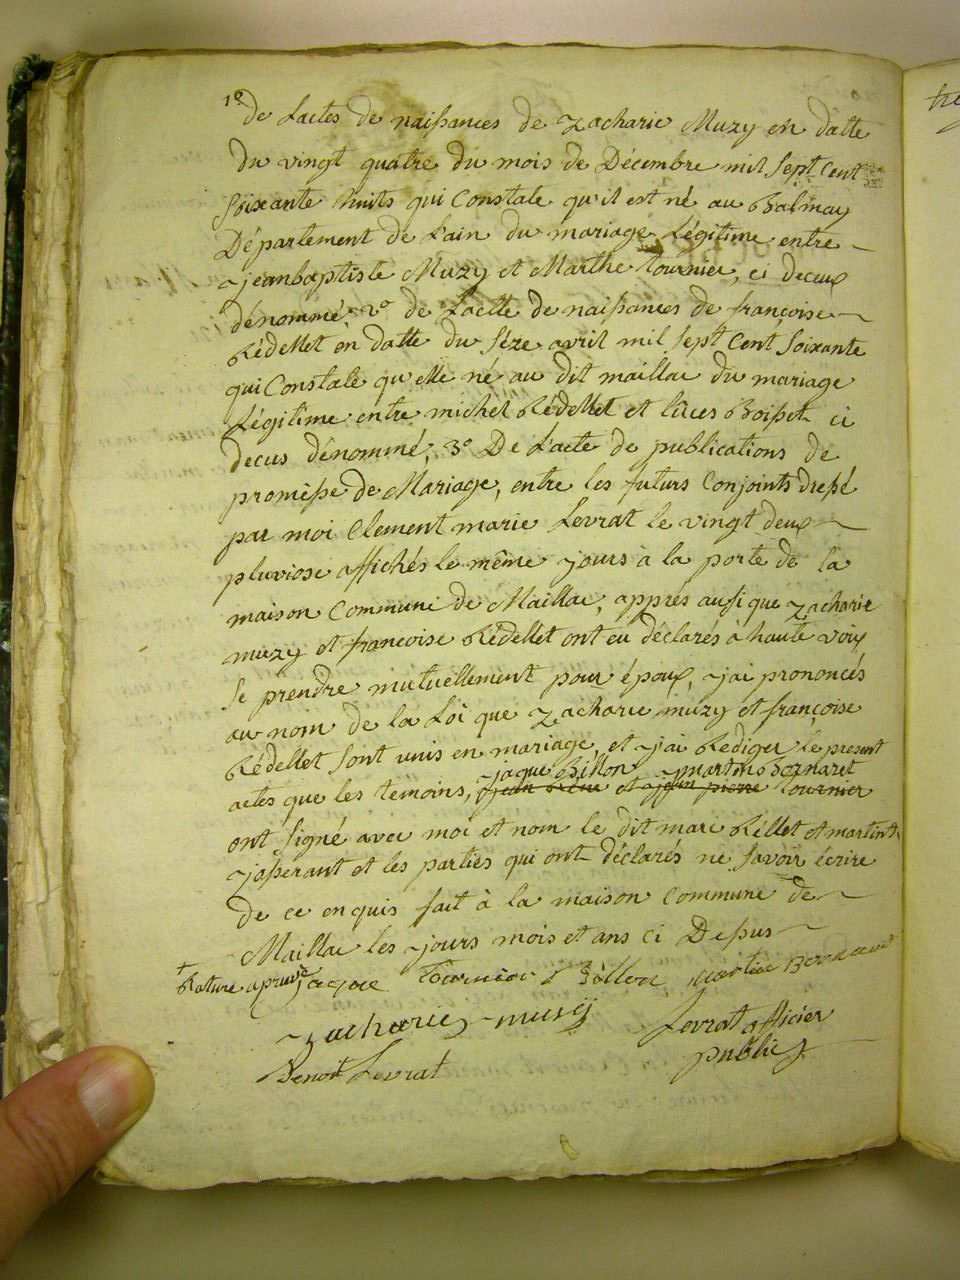 1º de Lactes de naissances de Zacharie Muzy en datte
du vingt quatre du mois de Décembre mil sept cent
soixante huits qui Constate qu'il est né au Balmay
Département de l'ain du mariage Légitime entre
jeanbaptiste Muzy et Marthe tournier, ci decus
dénommé 2º de Lactte de naissances de françoise
Rédellet en datte du séze avril mil sept Cent soixante
qui Constate qu'elle né au dit maillac du mariage
Légitime entre michel Rédellet et lûces Boisset ci
decus dénommé, 3º De l'acte de publications de
promèsse de Mariage, entre les futurs Conjoints dressé
par moi Clement marie Levrat le vingt deux
pluviose affichés le même jours à la porte de la
maison Commune de Maillac, apprés aussi que Zacharie
muzy et francoise Rédellet ont eu déclarés à haute voix
se prendre mutuellement pour époux, j'ai prononcés
au nom de la Loi que Zacharie muzy et françoise
Rédellet sont unis en mariage, et j'ai Rediger le present
jaque Billon martins Bornaret
actes que les temoins, et jean pierre tournier
ont signé avec moi et nom le dit marc Réllet et martint
josserant et les parties qui ont déclarés ne savoir écrire
de ce enquis fait à la maison Commune de
Maillac les jours mois et ans ci Dessus
+ Rature apruvé jaque Tournier Billon martin Bornaret
Zacharie musÿ Levrat officier
Benoit Levrat public